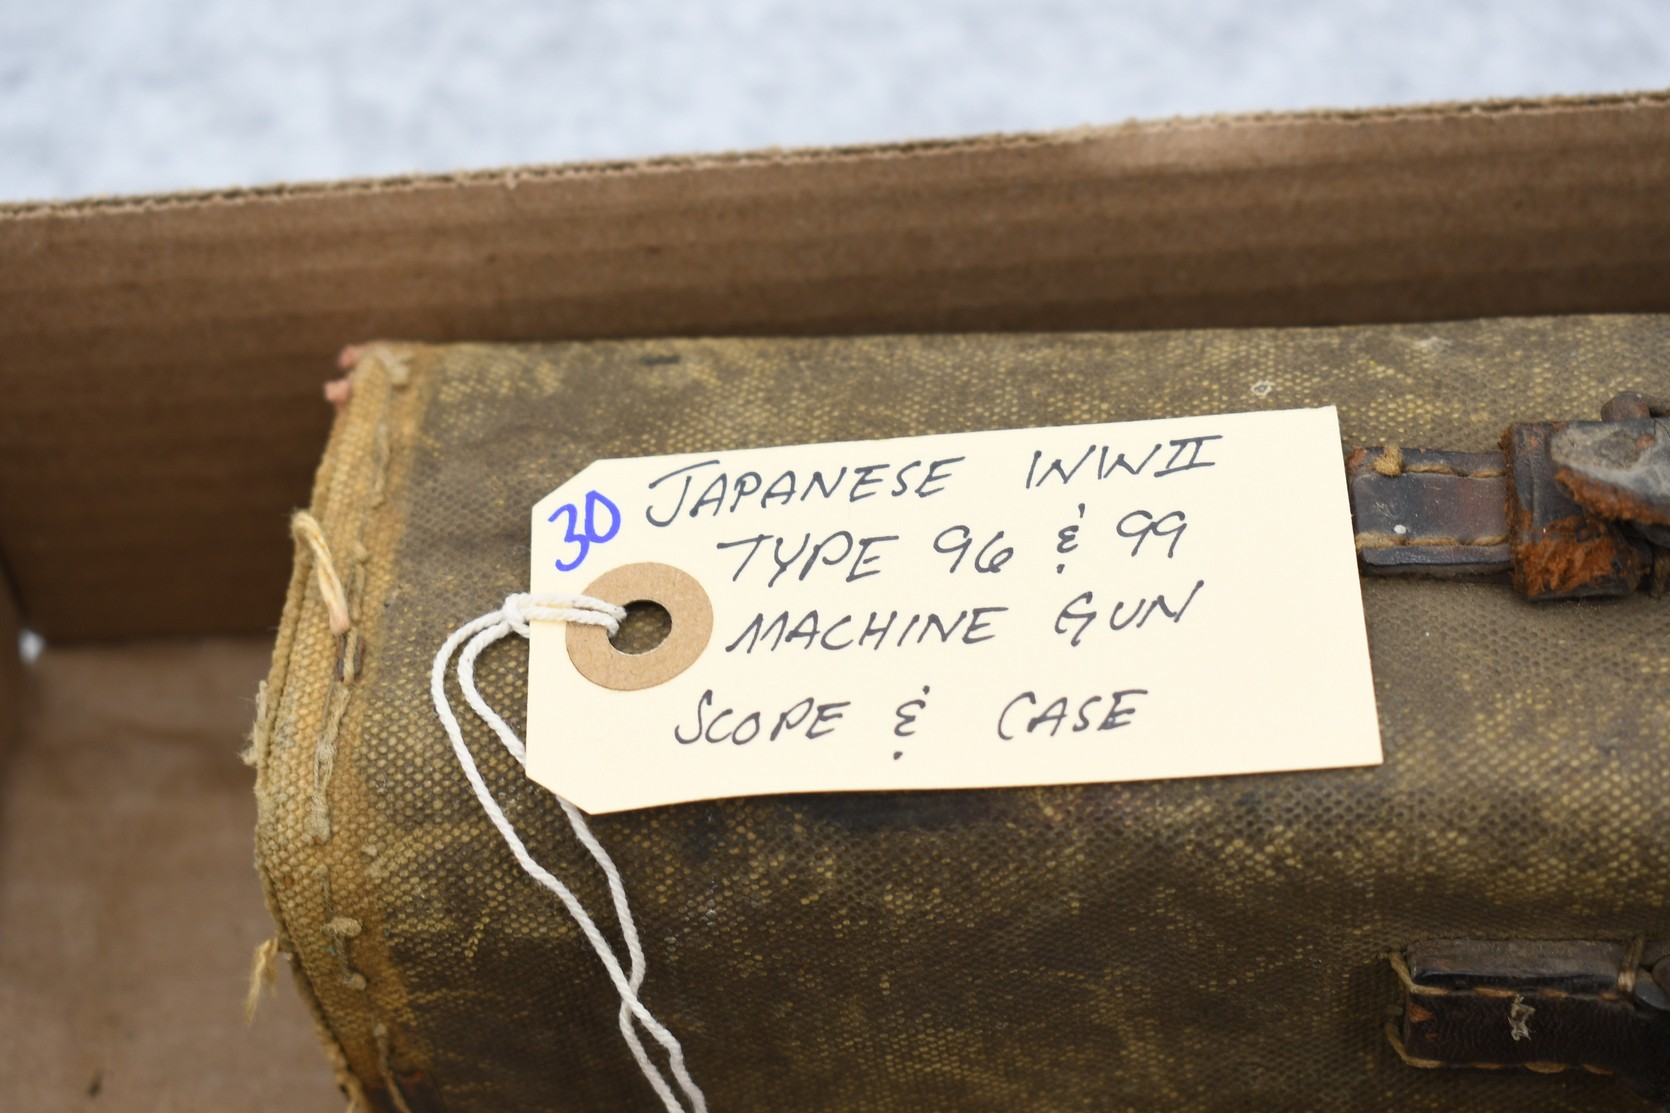 30
JAPANESE WWII
TYPE 96 & 99
MACHINE GUN
SCOPE & CASE